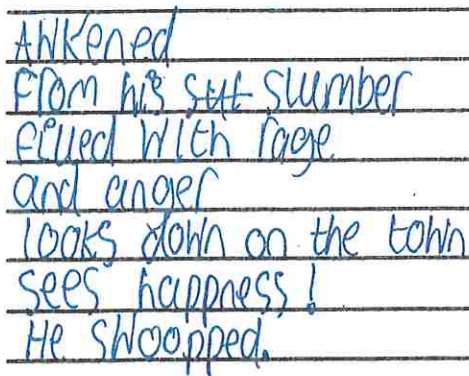 Awkened
From his sut slumber
filled with rage
and anger
looks down on the town
sees happness!
He swoopped.